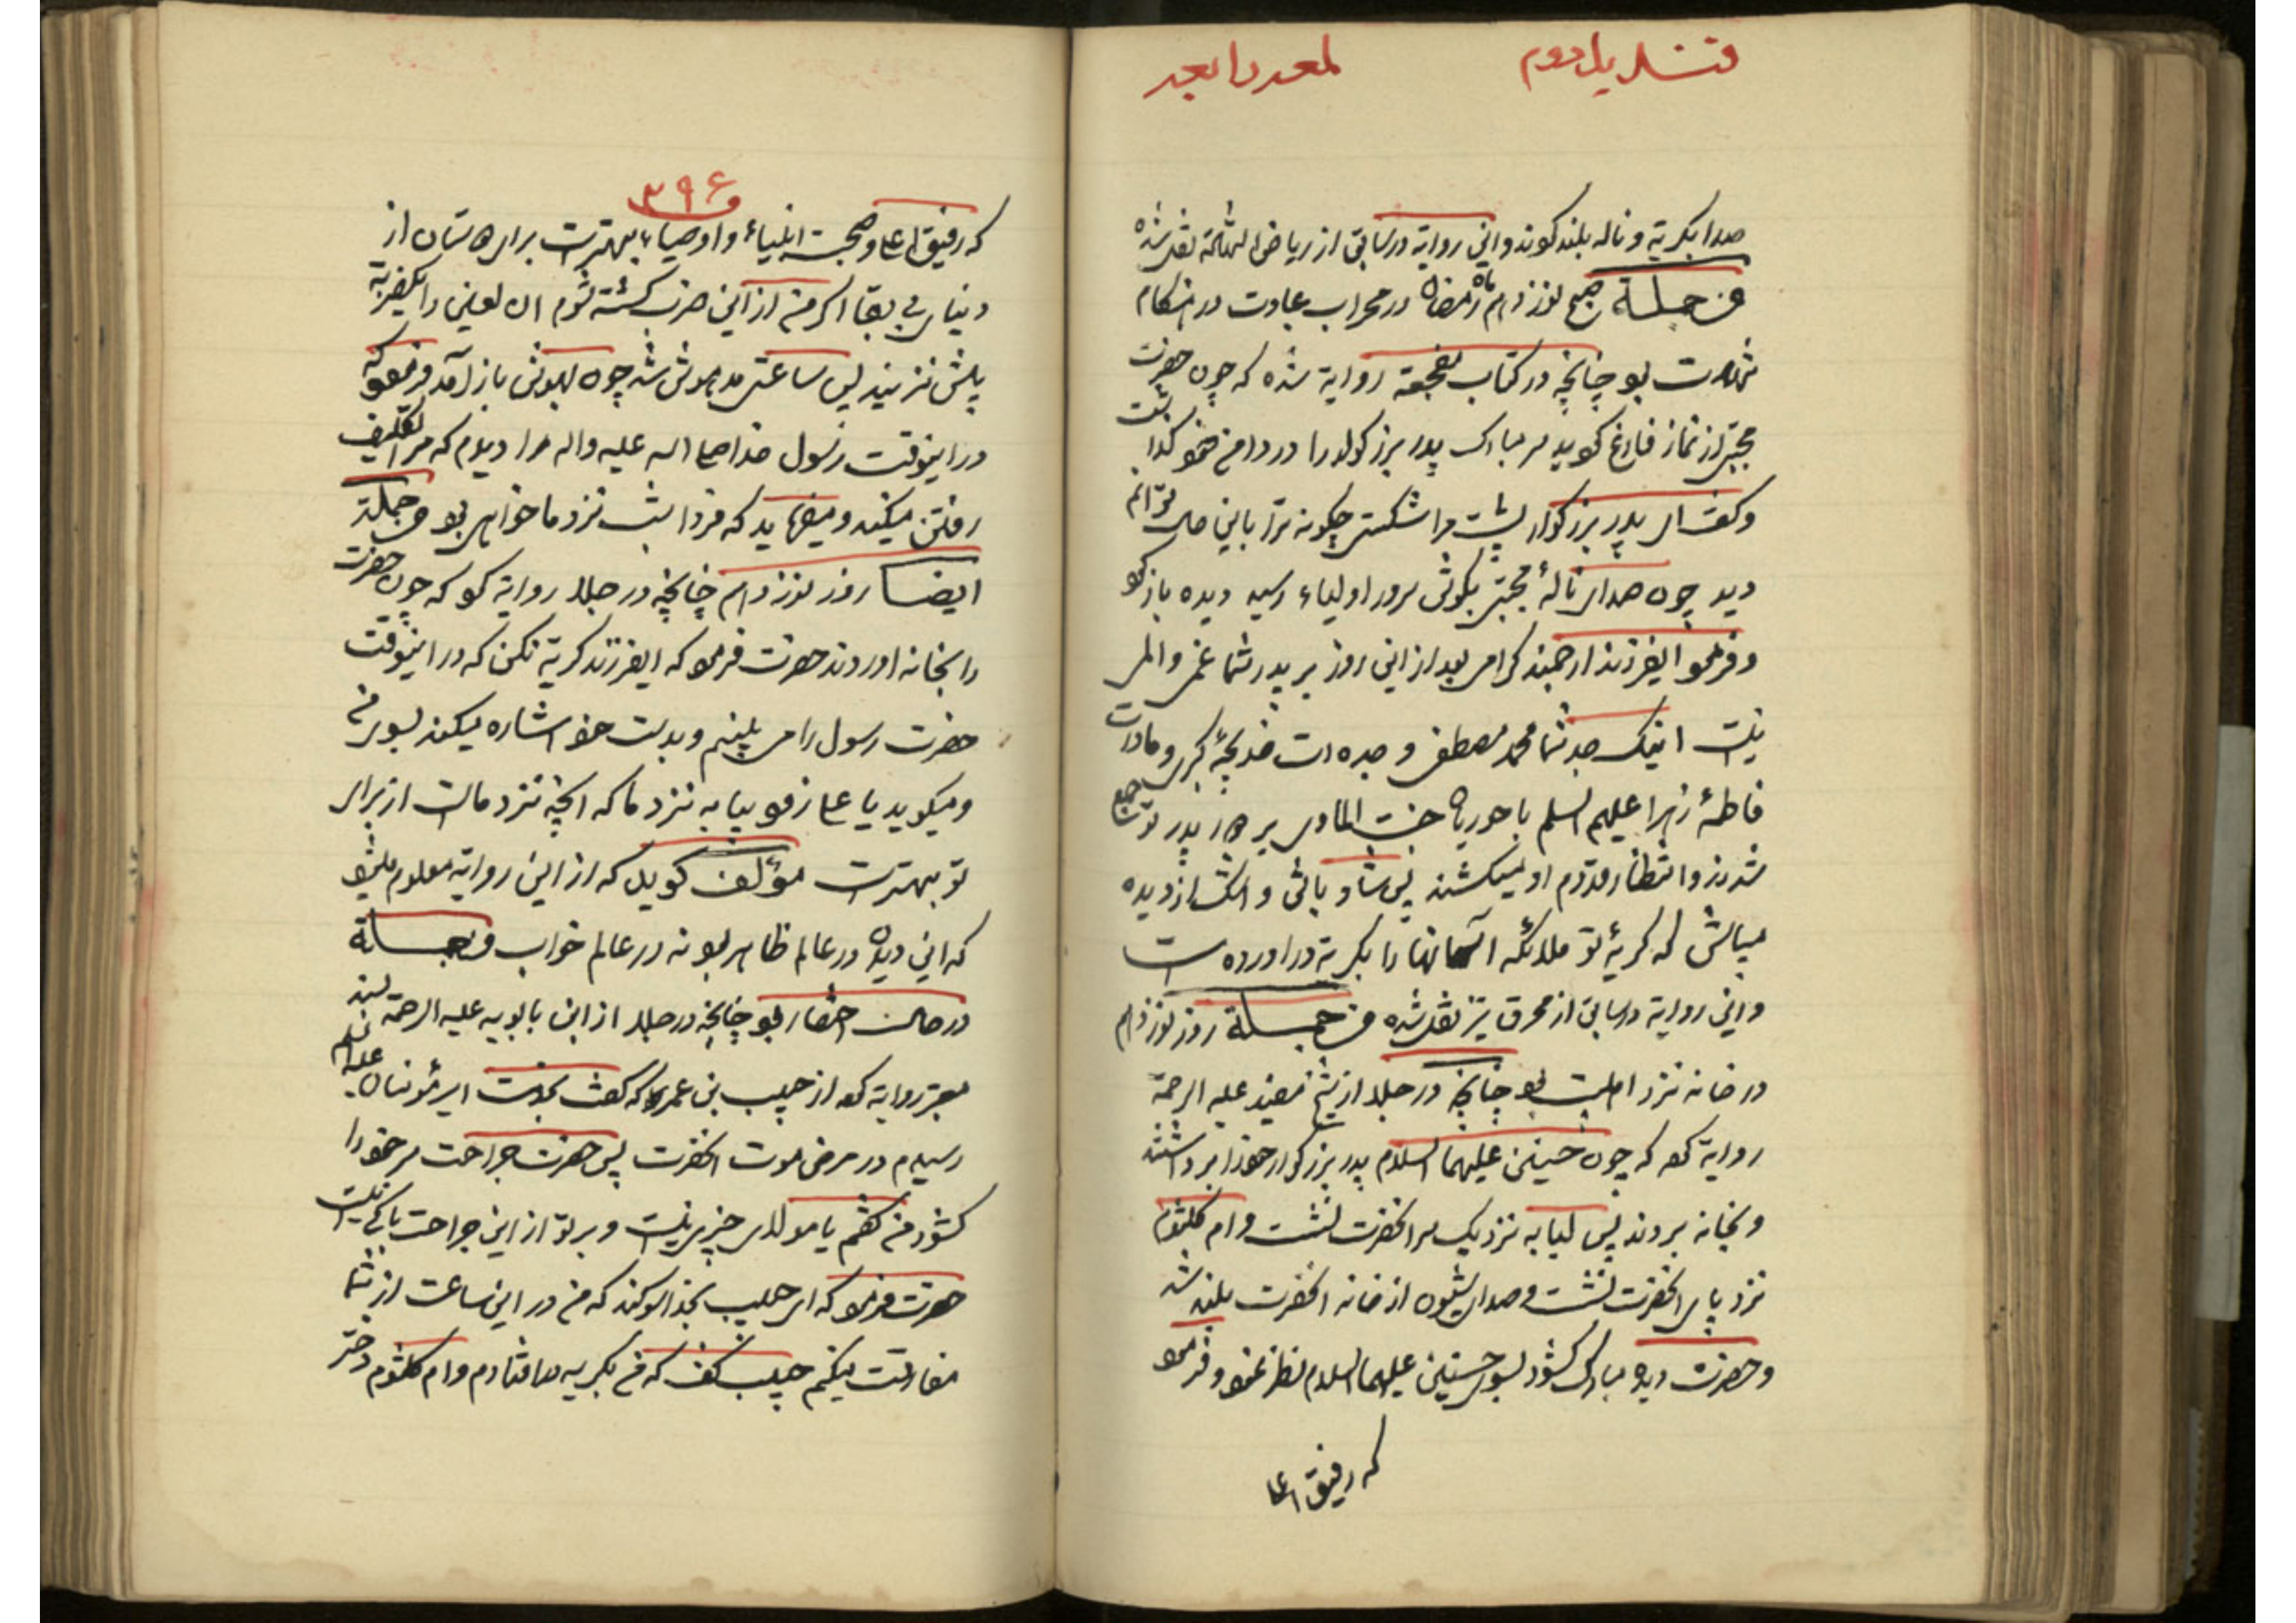 قندیل دوم لمعه رابعه
صدا بگریه و ناله بلند کردند و این روایة در سابق از ریاض الشهادة نقل شده
من جملة صبح نوزدهم ماه رمضان در محراب عبادت در هنگام
شهادت بود چنانچه در کتاب مفجعة روایة شده که چون حضرت
مجتبی از نماز فارغ گردید سر مبارک پدر بزرگوار را در دامن خود گذاشت
و گفت ای پدر بزرگوار پشت مرا شکستی چگونه ترا باین حال توانم
دید چون صدای نالهٔ مجتبی بگوش سرور اولیاء رسید دیده باز کرد
و فرمود ایفرزند ارجمند گرامی بعد از این روز بر پدر شما غمی و المی
نیست اینک جد شما محمد مصطفی و جده ات خدیجهٔ کبری و مادرت
فاطمهٔ زهرا علیهم السلم با حوریان جنت الماوی بر دور پدر تو جمع
شدند و انتظار قدوم او میکشند پس شاد باش و اشک از دیده
مپاش که گریهٔ تو ملائکه آسمانها را بگریه در اورده است
و این روایة در سابق از محرق نیز نقل شده من جملة روز نوزدهم
در خانه نزد اهلبیت بود چنانچه در جلد از شیخ مفید علیه الرحمة
روایة کرده که چون حسنین علیهما السلام پدر بزرگوار خود را برداشتند
و بخانه بردند پس لبابه نزدیک سر انحضرت نشست و ام کلثوم
نزد پای انحضرت نشست و صدای شیون از خانه انحضرت بلند شد
و حضرت دیده مبارک گشود بسوی حسنین علیهما السلام نظر نمود و فرمود
که رفیق اعلی
۳۹۶
که رفیق اعلی و صحبت انبیاء و اوصیاء بهتر است برای دوستان از
دنیای بی بقا اگر من از این ضرب کشته شوم ان لعین را یکضربة
بیش نزنید پس ساعتی مدهوش شد چون بهوش باز آمد فرمود که
در اینوقت رسول خدا صلی الله علیه واله را دیدم که مرا تکلیف
رفتن میکند و میفرماید که فردا شب نزد ما خواهی بود من جملة
ایضا روز نوزدهم چنانچه در جلد روایة کرد که چون حضرت
را بخانه اوردند حضرت فرمود که ایفرزند گریه نکن که در اینوقت
حضرت رسول را می بینم و بدست خود اشاره میکند بسوی من
و میگوید یا علی زود بیا به نزد ما که انچه نزد ماست از برای
تو بهتر است مؤلف گوید که از این روایة معلوم میشود
که این دیدن در عالم ظاهر بود نه در عالم خواب و من جملة
در حالت احتضار بود چنانچه در جلد از ابن بابویه علیه الرحمة بسند
معتبر روایة کرده از حبیب بن عمرو که گفت بخدمت امیرمؤمنان علیه السلم
رسیدم در مرض موت انحضرت پس حضرت جراحت سر خود را
گشود من گفتم یا مولای چیزی نیست و بر تو از این جراحت باکی نیست
حضرت فرمود که ای حبیب بخدا سوگند که من در این ساعت از شما
مفارقت میکنم حبیب گفت که من بگریه در افتادم و ام کلثوم دختر